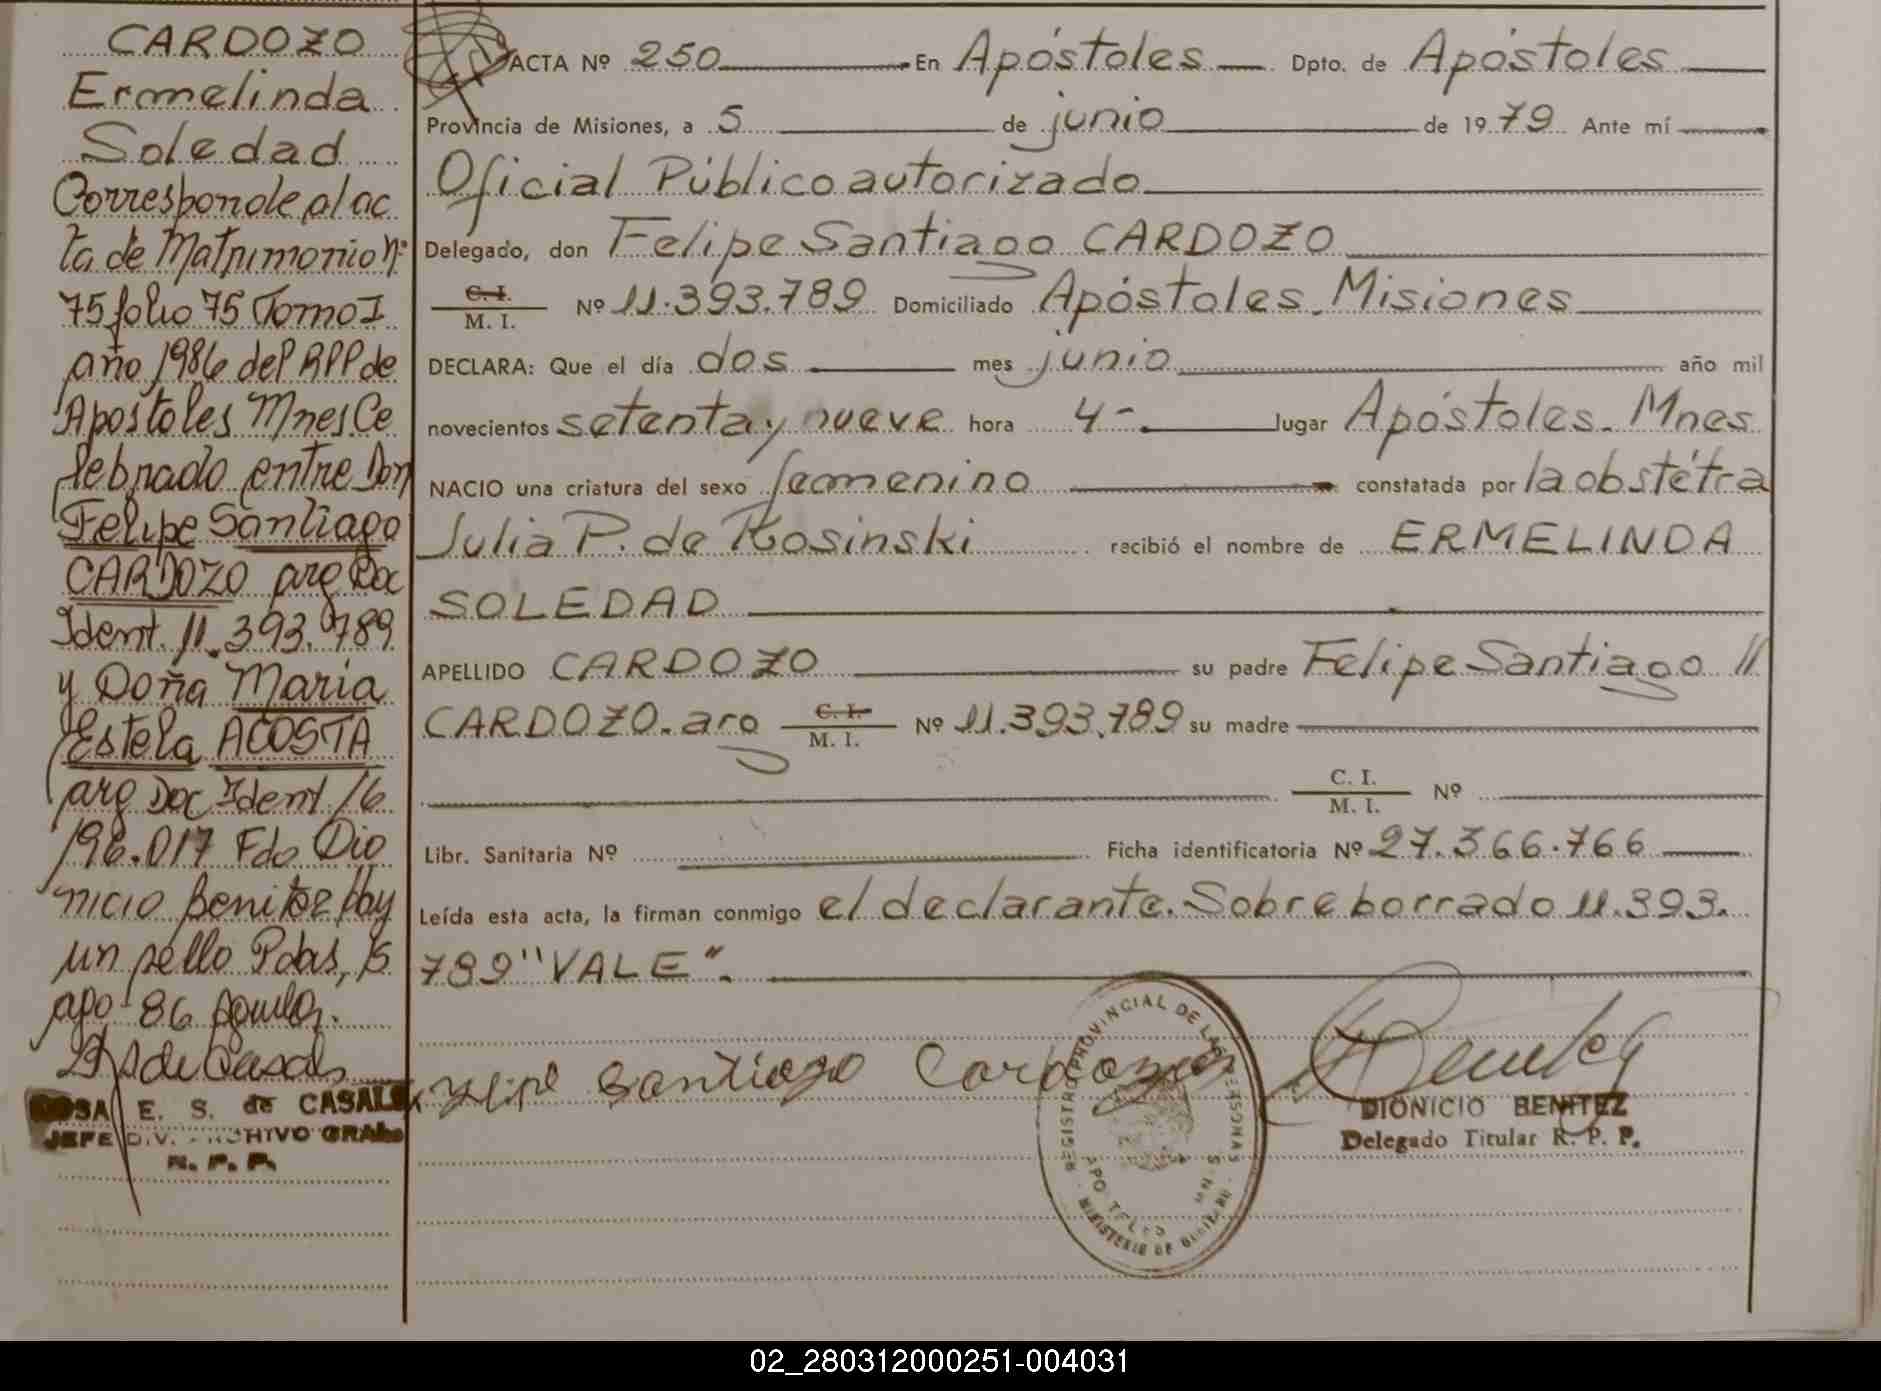 CARDOZO
Ermelinda
Soledad
Corresponde al ac
ta de Matrimonio Nº
75 folio 75 Tomo I
año 1986 del RPP de
Apostoles Mnes. Ce
lebrado entre Don
Felipe Santiago
CARDOZO arg Doc
Ident. 11.393.789
y Doña Maria
Estela ACOSTA
arg Doc Ident 16
196.017 Fdo Dio
nicio Benitez Hay
un sello Pdas, 15
ago - 86
de Casals
ROSA E. S. de CASALS
JEFE DIV. ARCHIVO GRAL.
R. P. P.
ACTA Nº 250 En Apóstoles Dpto. de Apóstoles
Provincia de Misiones, a 5 de junio de 1979 Ante mí
Oficial Público autorizado
Delegado, don Felipe Santiago CARDOZO
C. I.
M. I. Nº 11.393.789 Domiciliado Apóstoles. Misiones
DECLARA: Que el día dos mes junio año mil
novecientos setenta y nueve hora 4- lugar Apóstoles. Mnes
NACIO una criatura del sexo femenino constatada por la obstétra
Julia P. de Kosinski recibió el nombre de ERMELINDA
SOLEDAD
APELLIDO CARDOZO su padre Felipe Santiago //
CARDOZO. arg C. I. M. I. Nº 11.393.789 su madre
C. I.
M. I. Nº
Libr. Sanitaria Nº Ficha identificatoria Nº 27.366.766
Leída esta acta, la firman conmigo el declarante. Sobreborrado 11.393.
789 "VALE".
Felipe Santiago Cardozo
REGISTRO PROVINCIAL DE LAS PERSONAS
APOSTOLES
MINISTERIO DE GOBIERNO
DIONICIO BENITEZ
Delegado Titular R. P. P.
02_280312000251-004031